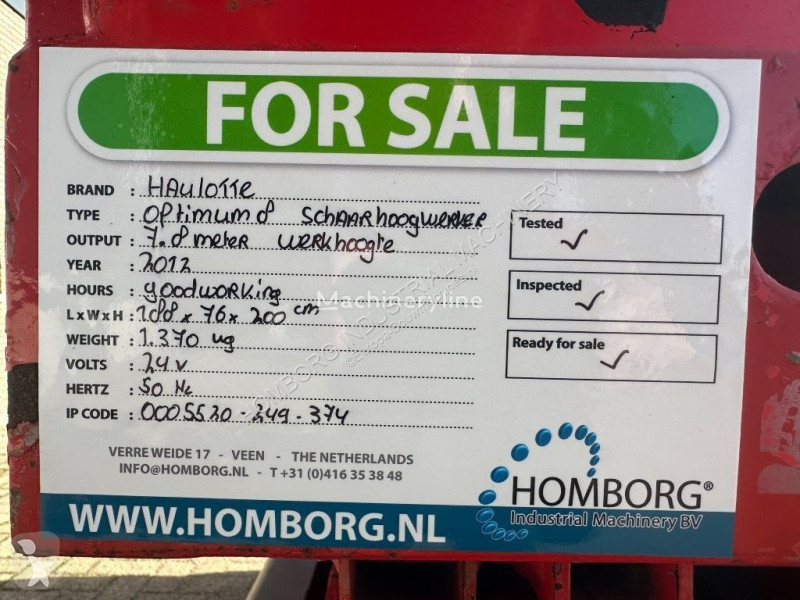 FOR SALE
BRAND : HAulotte
TYPE : Optimum 8 SCHAARhoogwerker
OUTPUT : 7.8 meter werkhoogte
YEAR : 2012
HOURS : goodworking
L x W x H : 188 x 76 x 200 cm
WEIGHT : 1.370 kg
VOLTS : 24 v
HERTZ : 50 Hz
IP CODE : 0005520-249-374
Tested ✓
Inspected ✓
Ready for sale ✓
Machineryline
HOMBORG INDUSTRIAL MACHINERY
VERRE WEIDE 17 - VEEN - THE NETHERLANDS
INFO@HOMBORG.NL - T +31 (0)416 35 38 48
HOMBORG®
Industrial Machinery BV
WWW.HOMBORG.NL